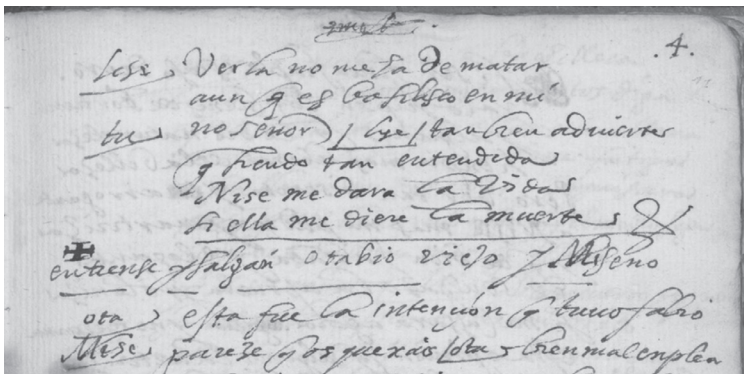 .4.
lise Verla no me ha de matar
aun q es basilisco en mi
tu no señor / lise / tanbien advierte
q siendo tan entendida
Nise me dara la vida
si ella me diere la muerte
entrense y salgan otabio viejo y Miseno
ota esta fue la intençion q tuvo fabio
Mise pareze q os quexais / ota bien mal enplea